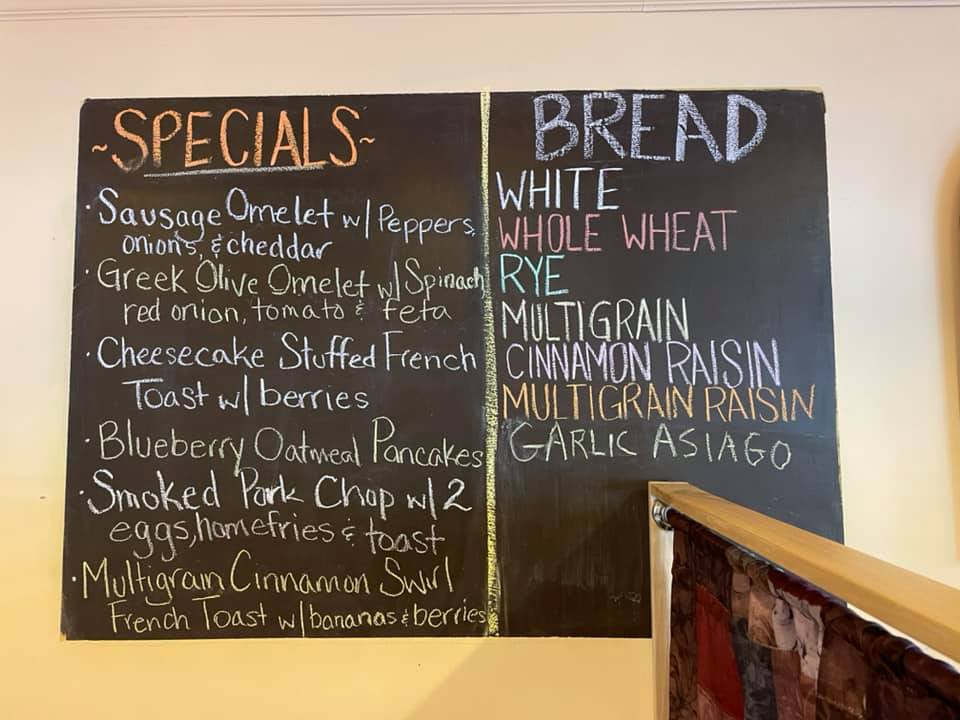 ~SPECIALS~
· Sausage Omelet w/ Peppers,
onions, & cheddar
· Greek Olive Omelet w/ Spinach
red onion, tomato & feta
· Cheesecake Stuffed French
Toast w/ berries
· Blueberry Oatmeal Pancakes
· Smoked Pork Chop w/ 2
eggs, homefries & toast
· Multigrain Cinnamon Swirl
French Toast w/ bananas & berries
BREAD
WHITE
WHOLE WHEAT
RYE
MULTIGRAIN
CINNAMON RAISIN
MULTIGRAIN RAISIN
GARLIC ASIAGO